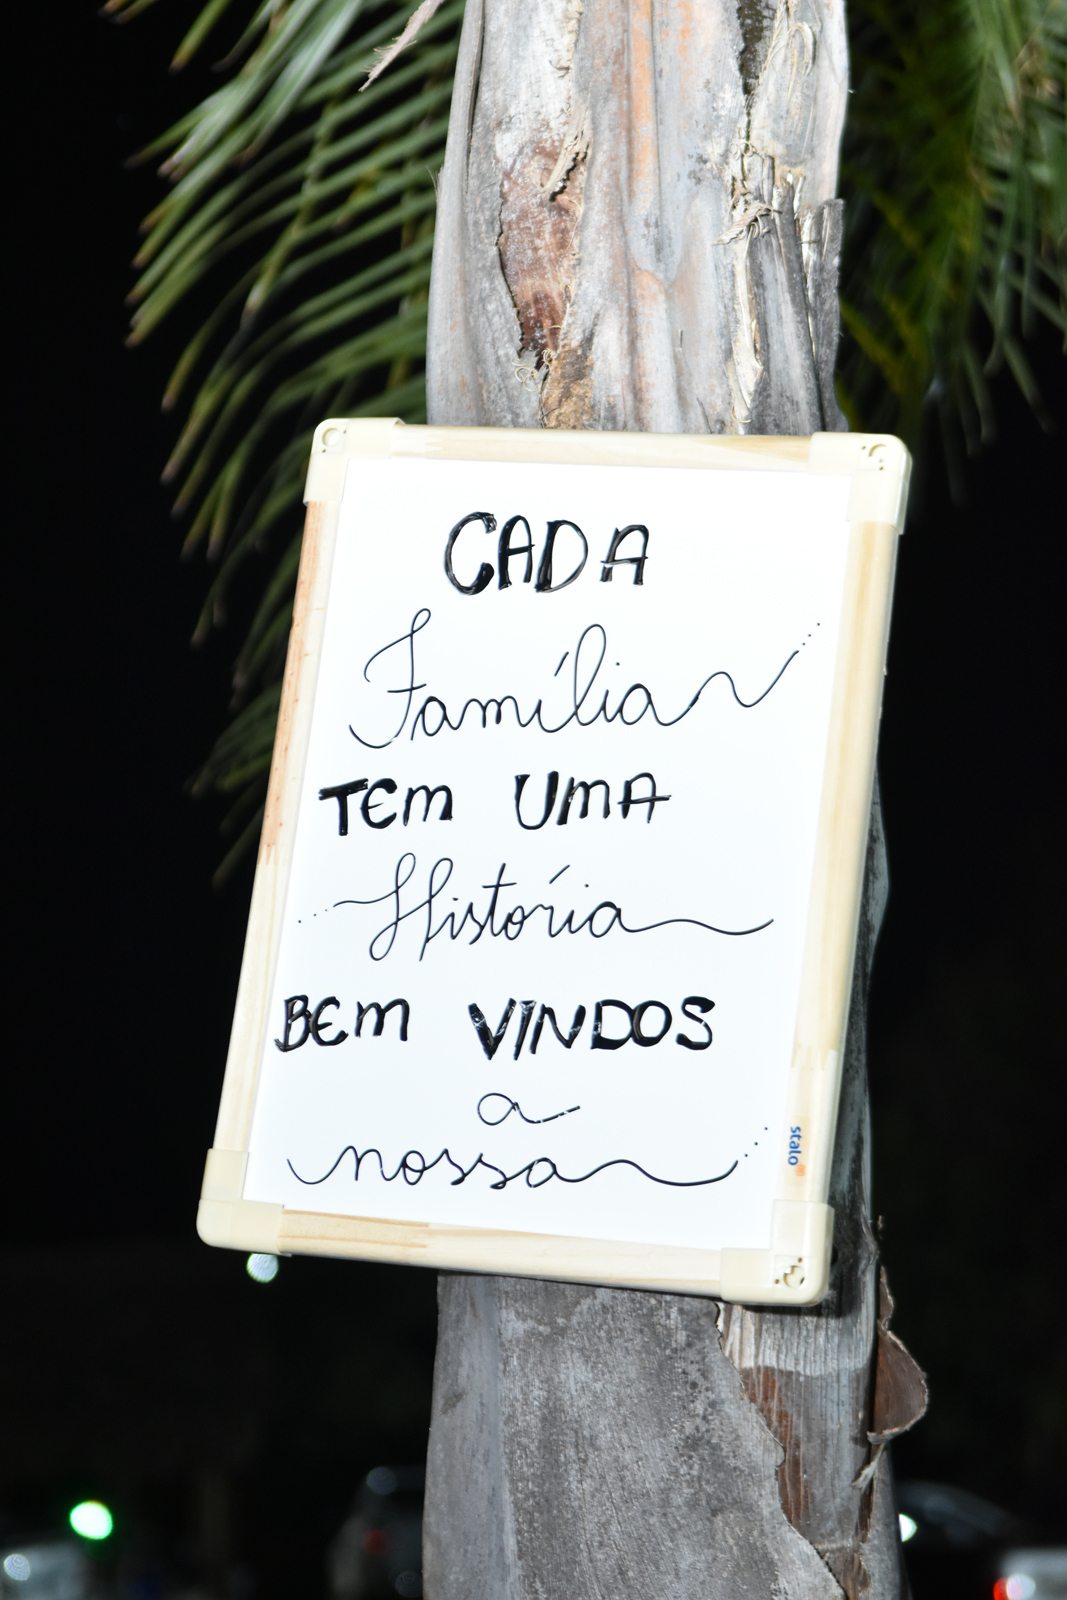 CADA
Família
TEM UMA
História
BEM VINDOS
a
nossa
stalo